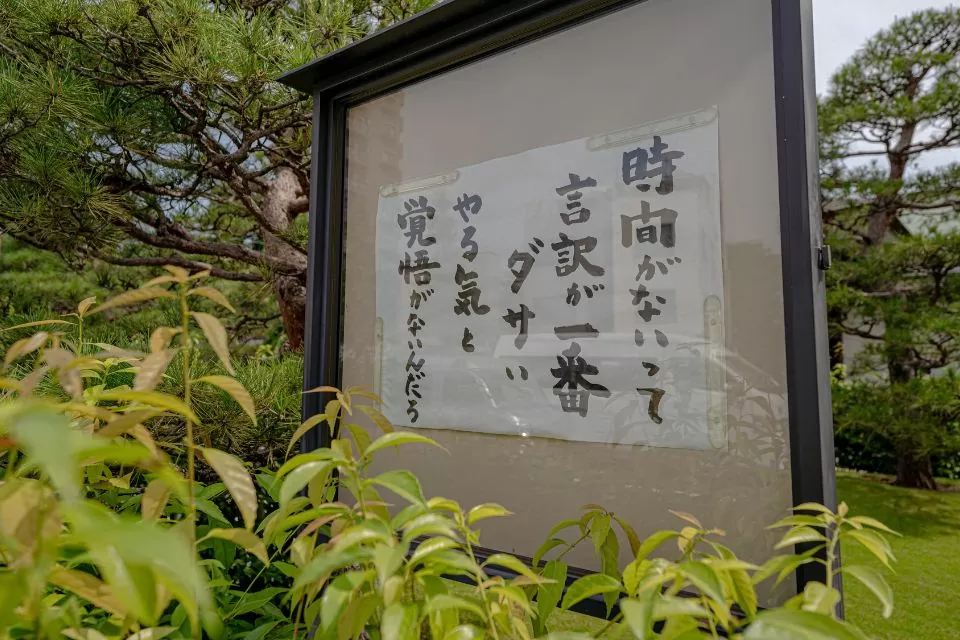 時間がないって
言訳が一番
ダサい
やる気と
覚悟がないんだろう